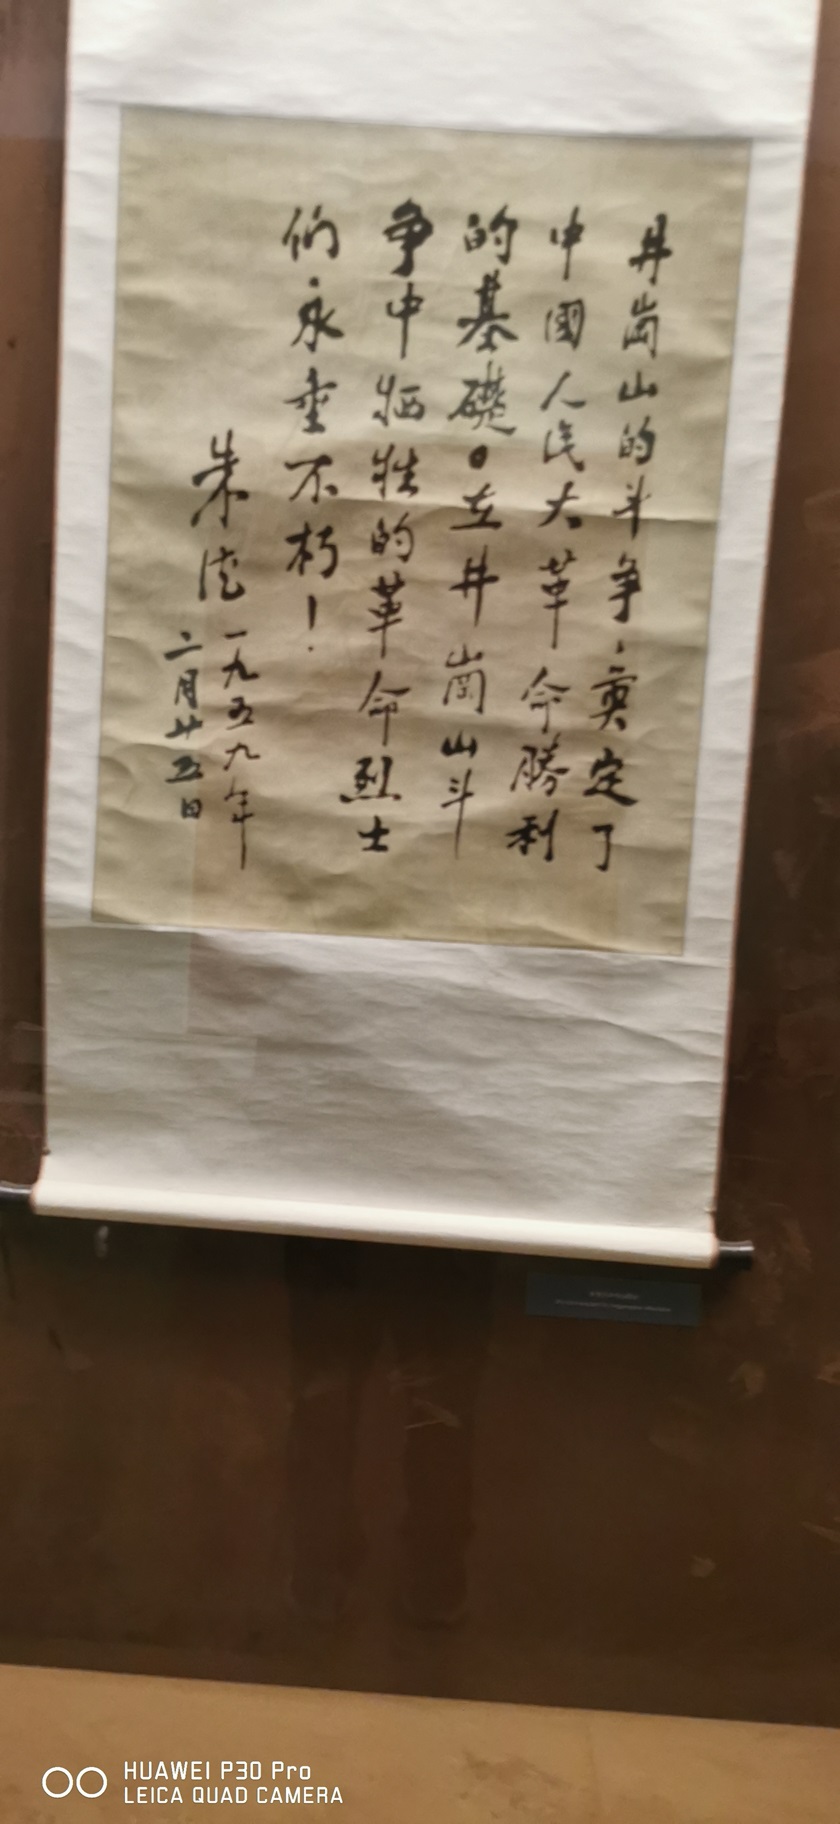 井崗山的斗争，奠定了
中國人民大革命勝利
的基礎。在井崗山斗
争中牺牲的革命烈士
们永垂不朽！
朱德 一九五九年
二月廿五日
HUAWEI P30 Pro
LEICA QUAD CAMERA